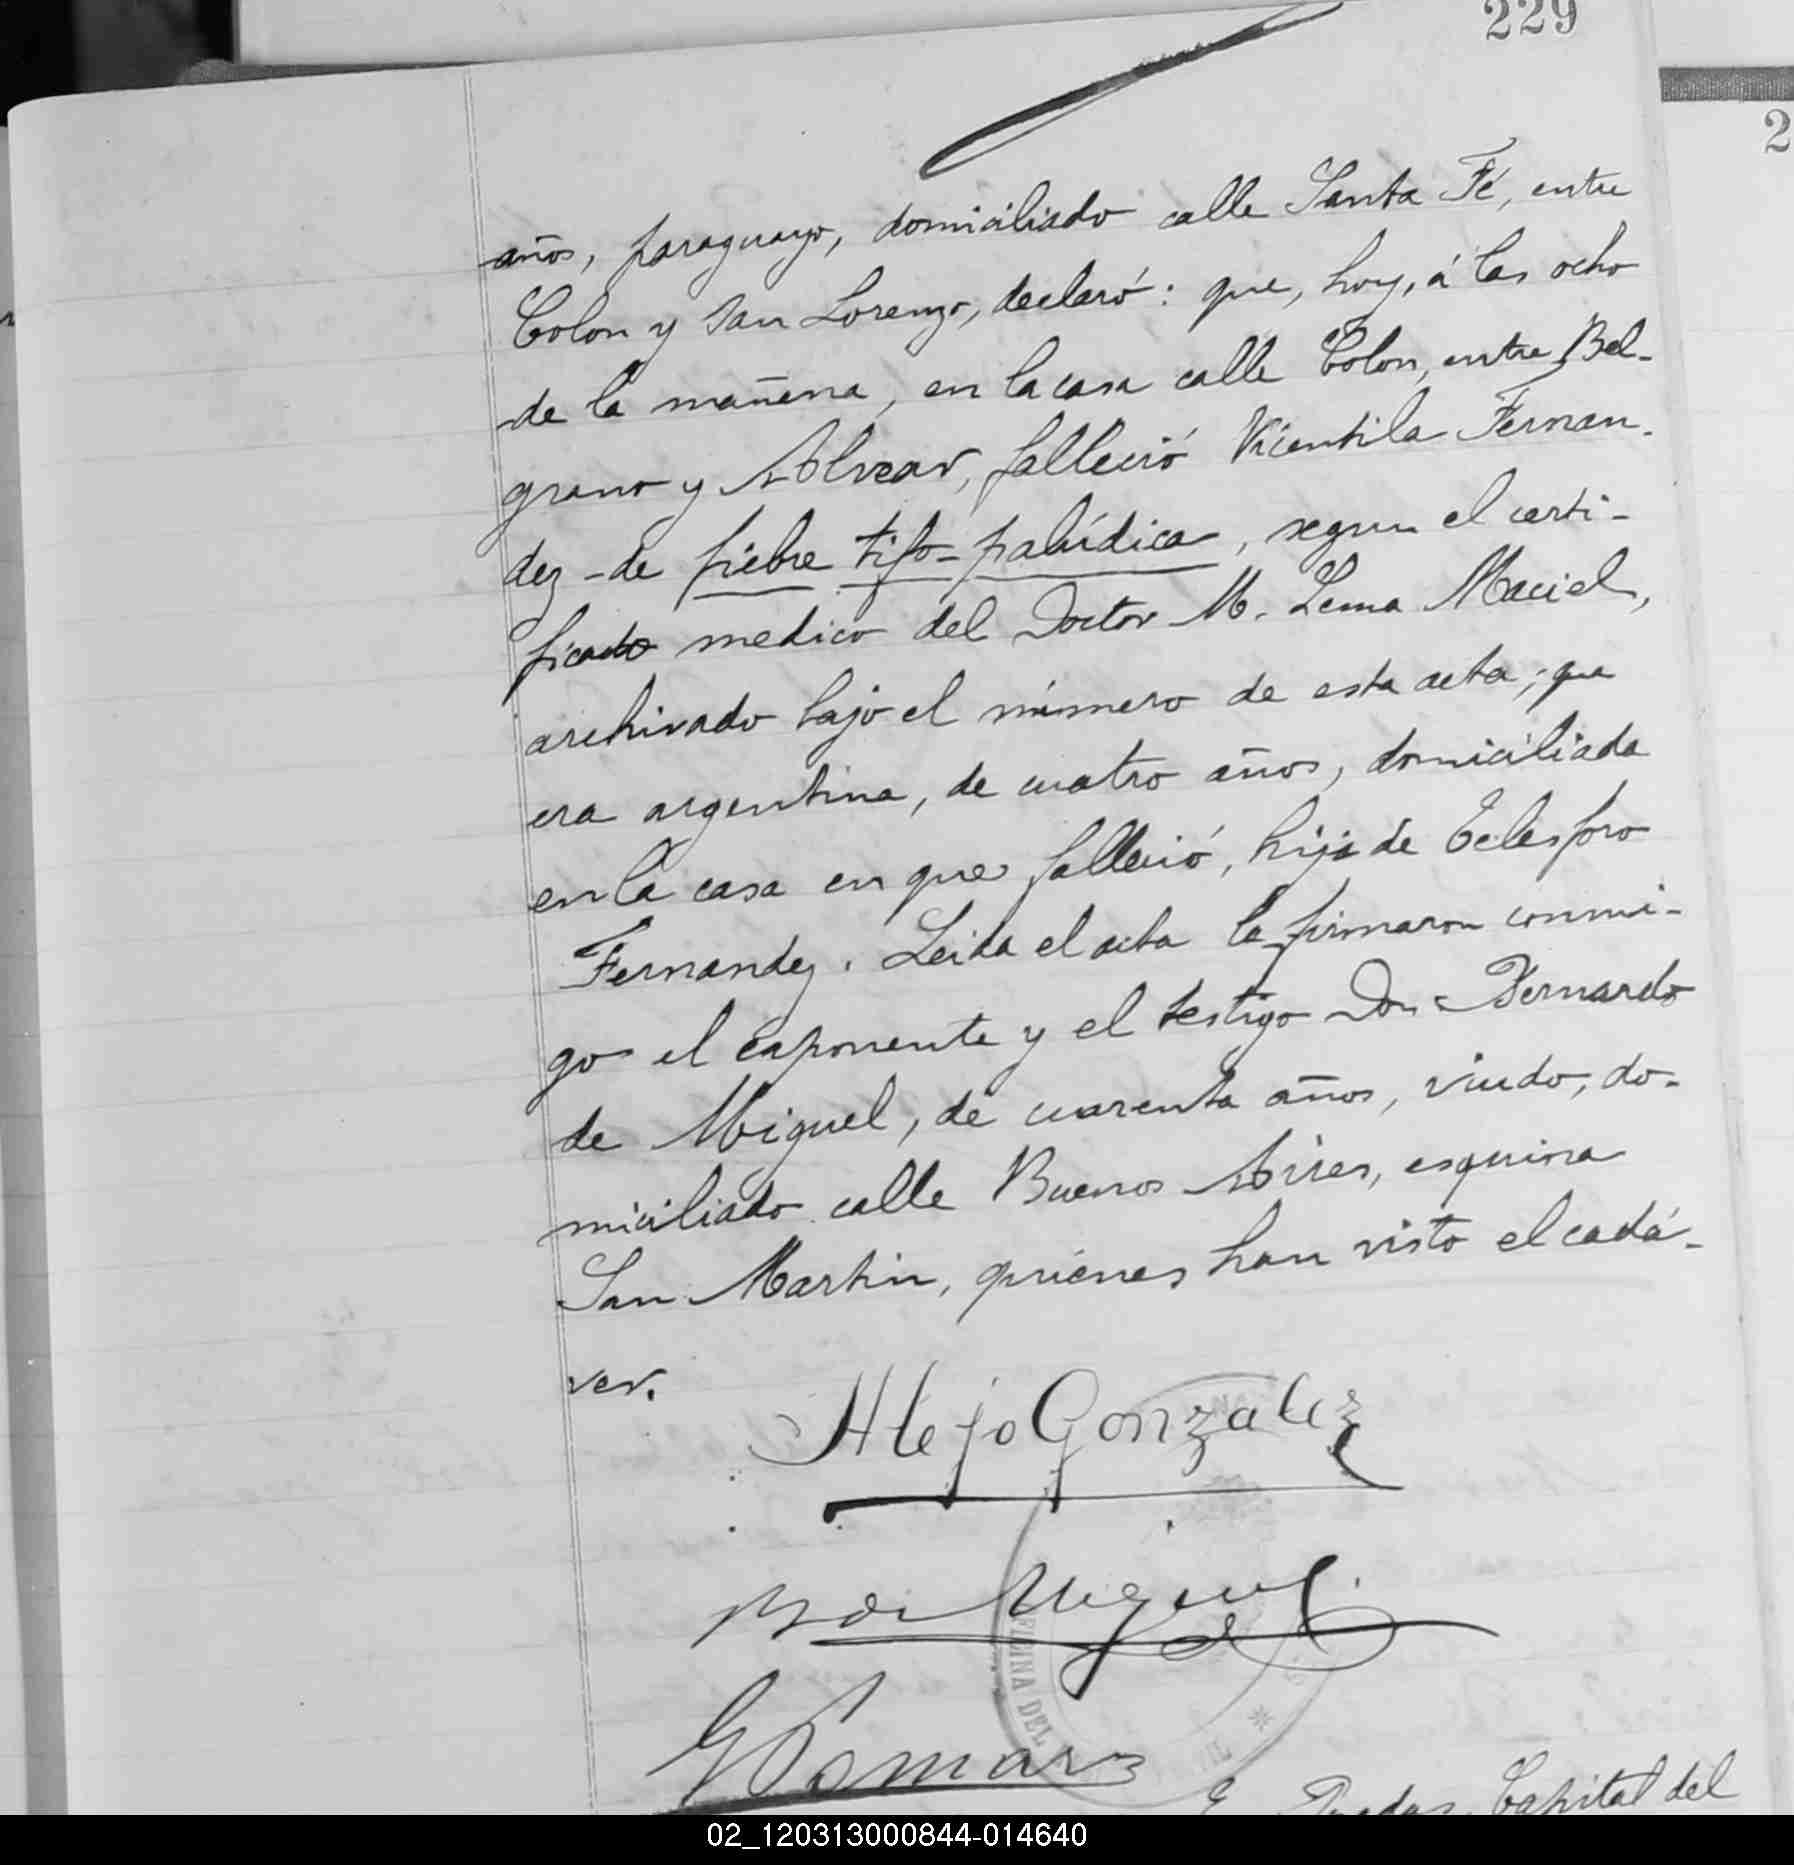 229
2
años, paraguayo, domiciliado calle Santa Fé, entre
Colon y San Lorenzo, declaró: que, hoy, á las ocho
de la mañana, en la casa calle Colon, entre Bel-
grano y Alvear, falleció Vicentila Fernan-
dez - de fiebre tifo-palúdica, segun el certi-
ficado medico del Doctor M. Lema Maciel,
archivado bajo el número de esta acta; que
era argentina, de cuatro años, domiciliada
en la casa en que falleció, hija de Telesforo
Fernandez. Leida el acta la firmaron conmi-
go el exponente y el testigo Don Bernardo
de Miguel, de cuarenta años, viudo, do-
miciliado calle Buenos Aires, esquina
San Martin, quiénes han visto el cadá-
ver.
Alejo Gonzalez
B de Miguel
OFICINA DEL
Posadas, Capital del
02_120313000844-014640